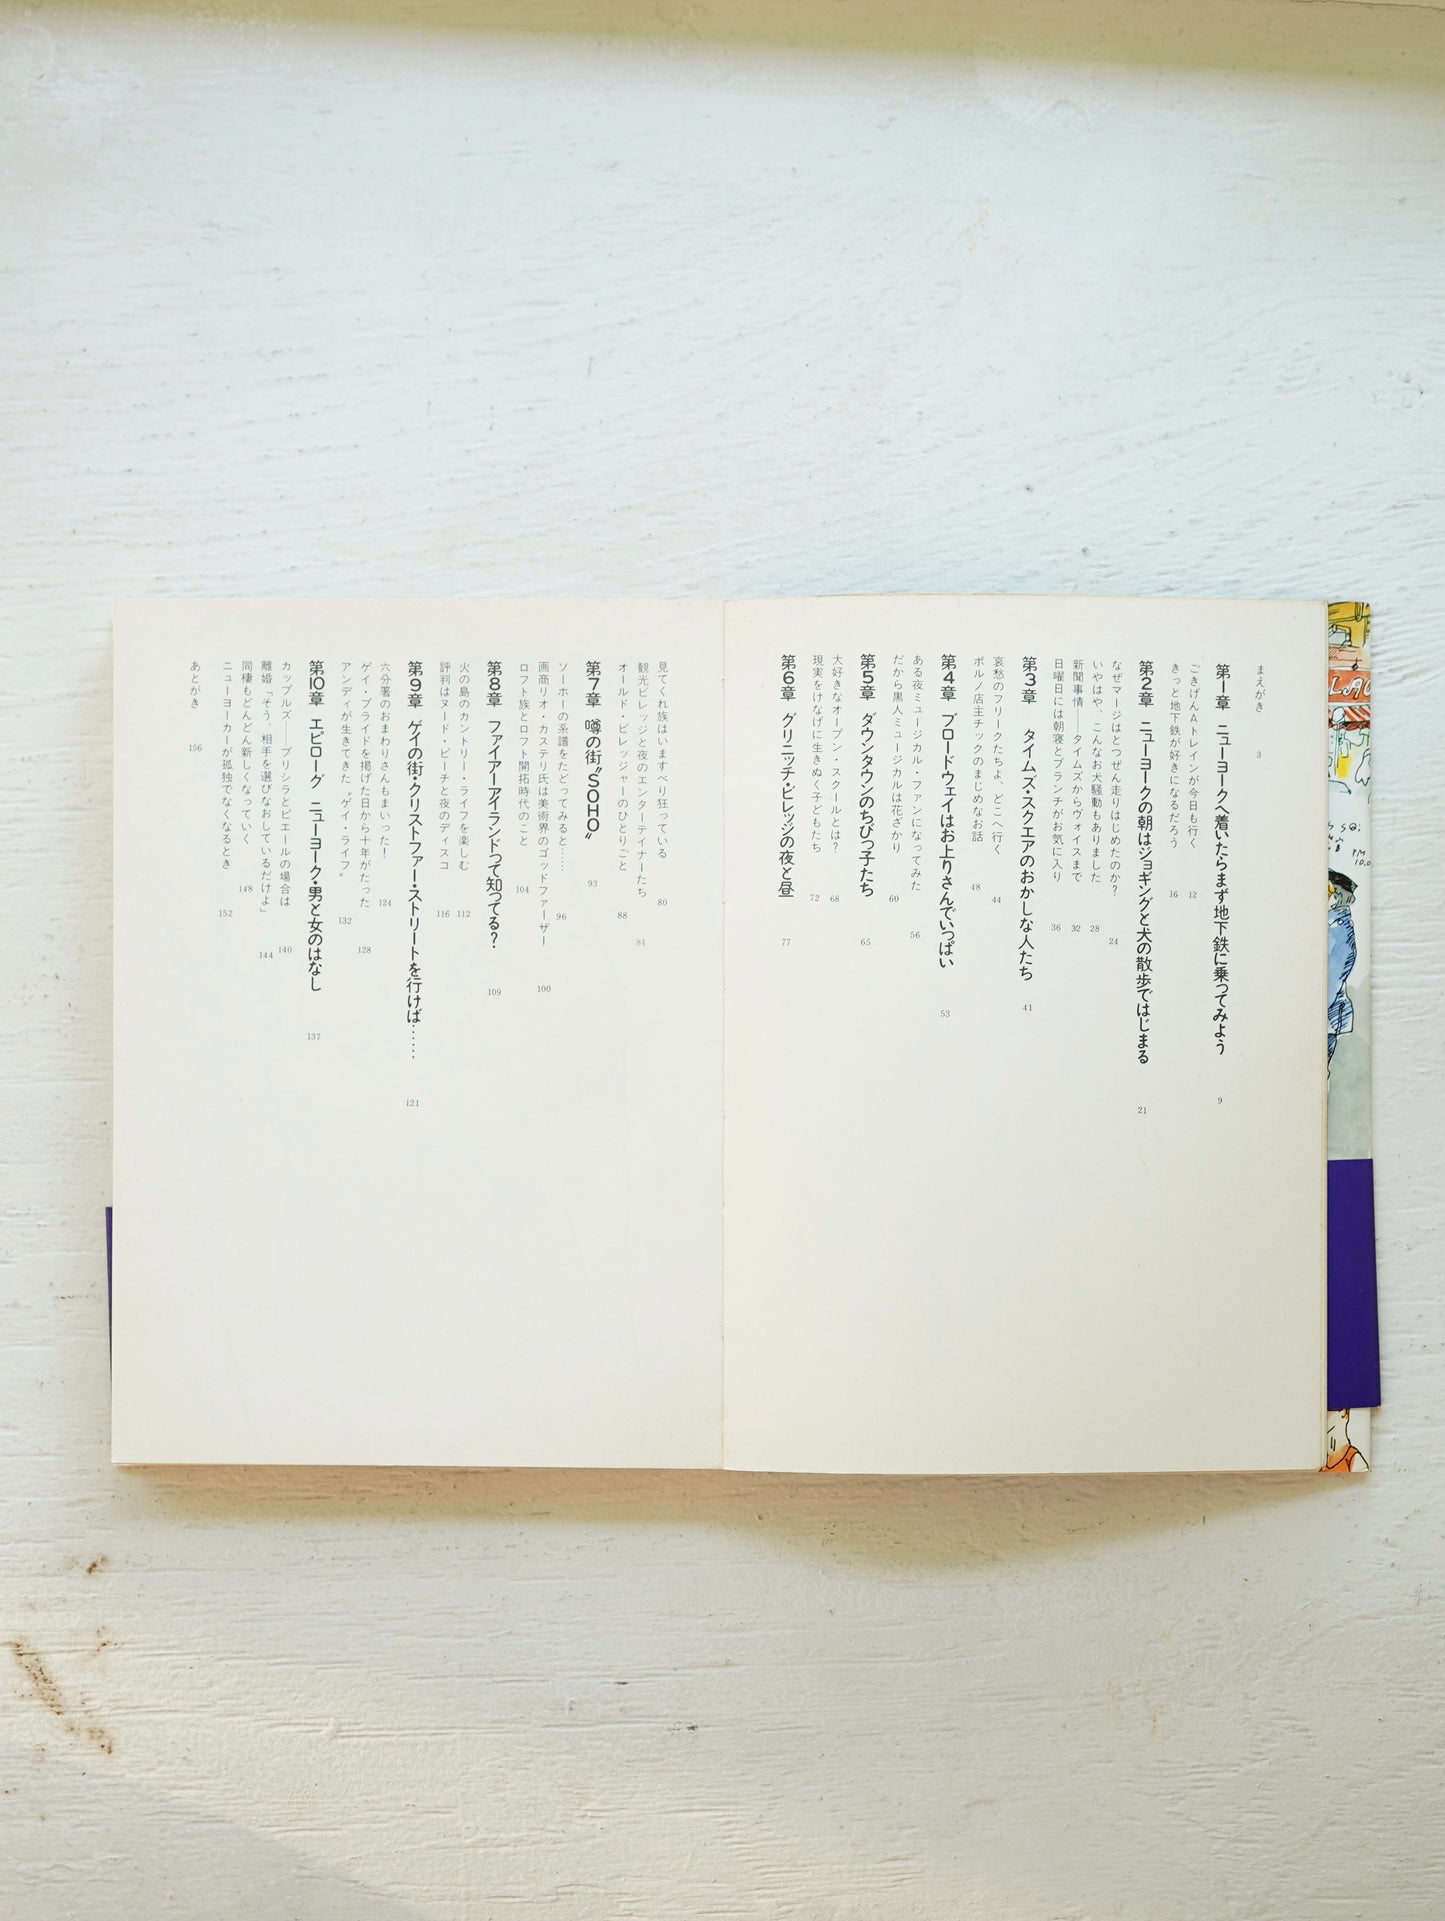 まえがき 3
第1章 ニューヨークへ着いたらまず地下鉄に乗ってみよう 9
ごきげんAトレインが今日も行く 12
きっと地下鉄が好きになるだろう 16
第2章 ニューヨークの朝はジョギングと犬の散歩ではじまる 21
なぜマージはとつぜん走りはじめたのか? 24
いやはや、こんなお犬騒動もありました 28
新聞事情——タイムズからヴォイスまで 32
日曜日には朝寝とブランチがお気に入り 36
第3章 タイムズ・スクエアのおかしな人たち 41
哀愁のフリークたちよ、どこへ行く 44
ポルノ店主チックのまじめなお話 48
第4章 ブロードウェイはお上りさんでいっぱい 53
ある夜ミュージカル・ファンになってみた 56
だから黒人ミュージカルは花ざかり 60
第5章 ダウンタウンのちびっ子たち 65
大好きなオープン・スクールとは? 68
現実をけなげに生きぬく子どもたち 72
第6章 グリニッチ・ビレッジの夜と昼 77
見てくれ族はいますべり狂っている 80
観光ビレッジと夜のエンターテイナーたち 84
オールド・ビレッジャーのひとりごと 88
第7章 噂の街〝SOHO〟 93
ソーホーの系譜をたどってみると…… 96
画商リオ・カステリ氏は美術界のゴッドファーザー 100
ロフト族とロフト開拓時代のこと 104
第8章 ファイアーアイランドって知ってる? 109
火の島のカントリー・ライフを楽しむ 112
評判はヌード・ビーチと夜のディスコ 116
第9章 ゲイの街・クリストファー・ストリートを行けば…… 121
六分署のおまわりさんもまいった! 124
ゲイ・プライドを掲げた日から十年がたった 128
アンディが生きてきた〝ゲイ・ライフ〟 132
第10章 エピローグ ニューヨーク・男と女のはなし 137
カップルズ——プリシラとピエールの場合は 140
離婚「そう、相手を選びなおしているだけよ」 144
同棲もどんどん新しくなっていく 148
ニューヨーカーが孤独でなくなるとき 152
あとがき 156